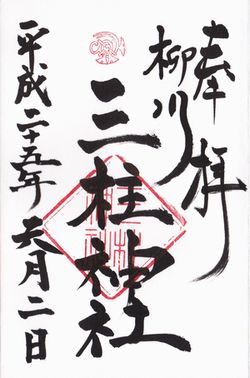 奉拝
柳川
三柱神社
平成二十五年 六月二日